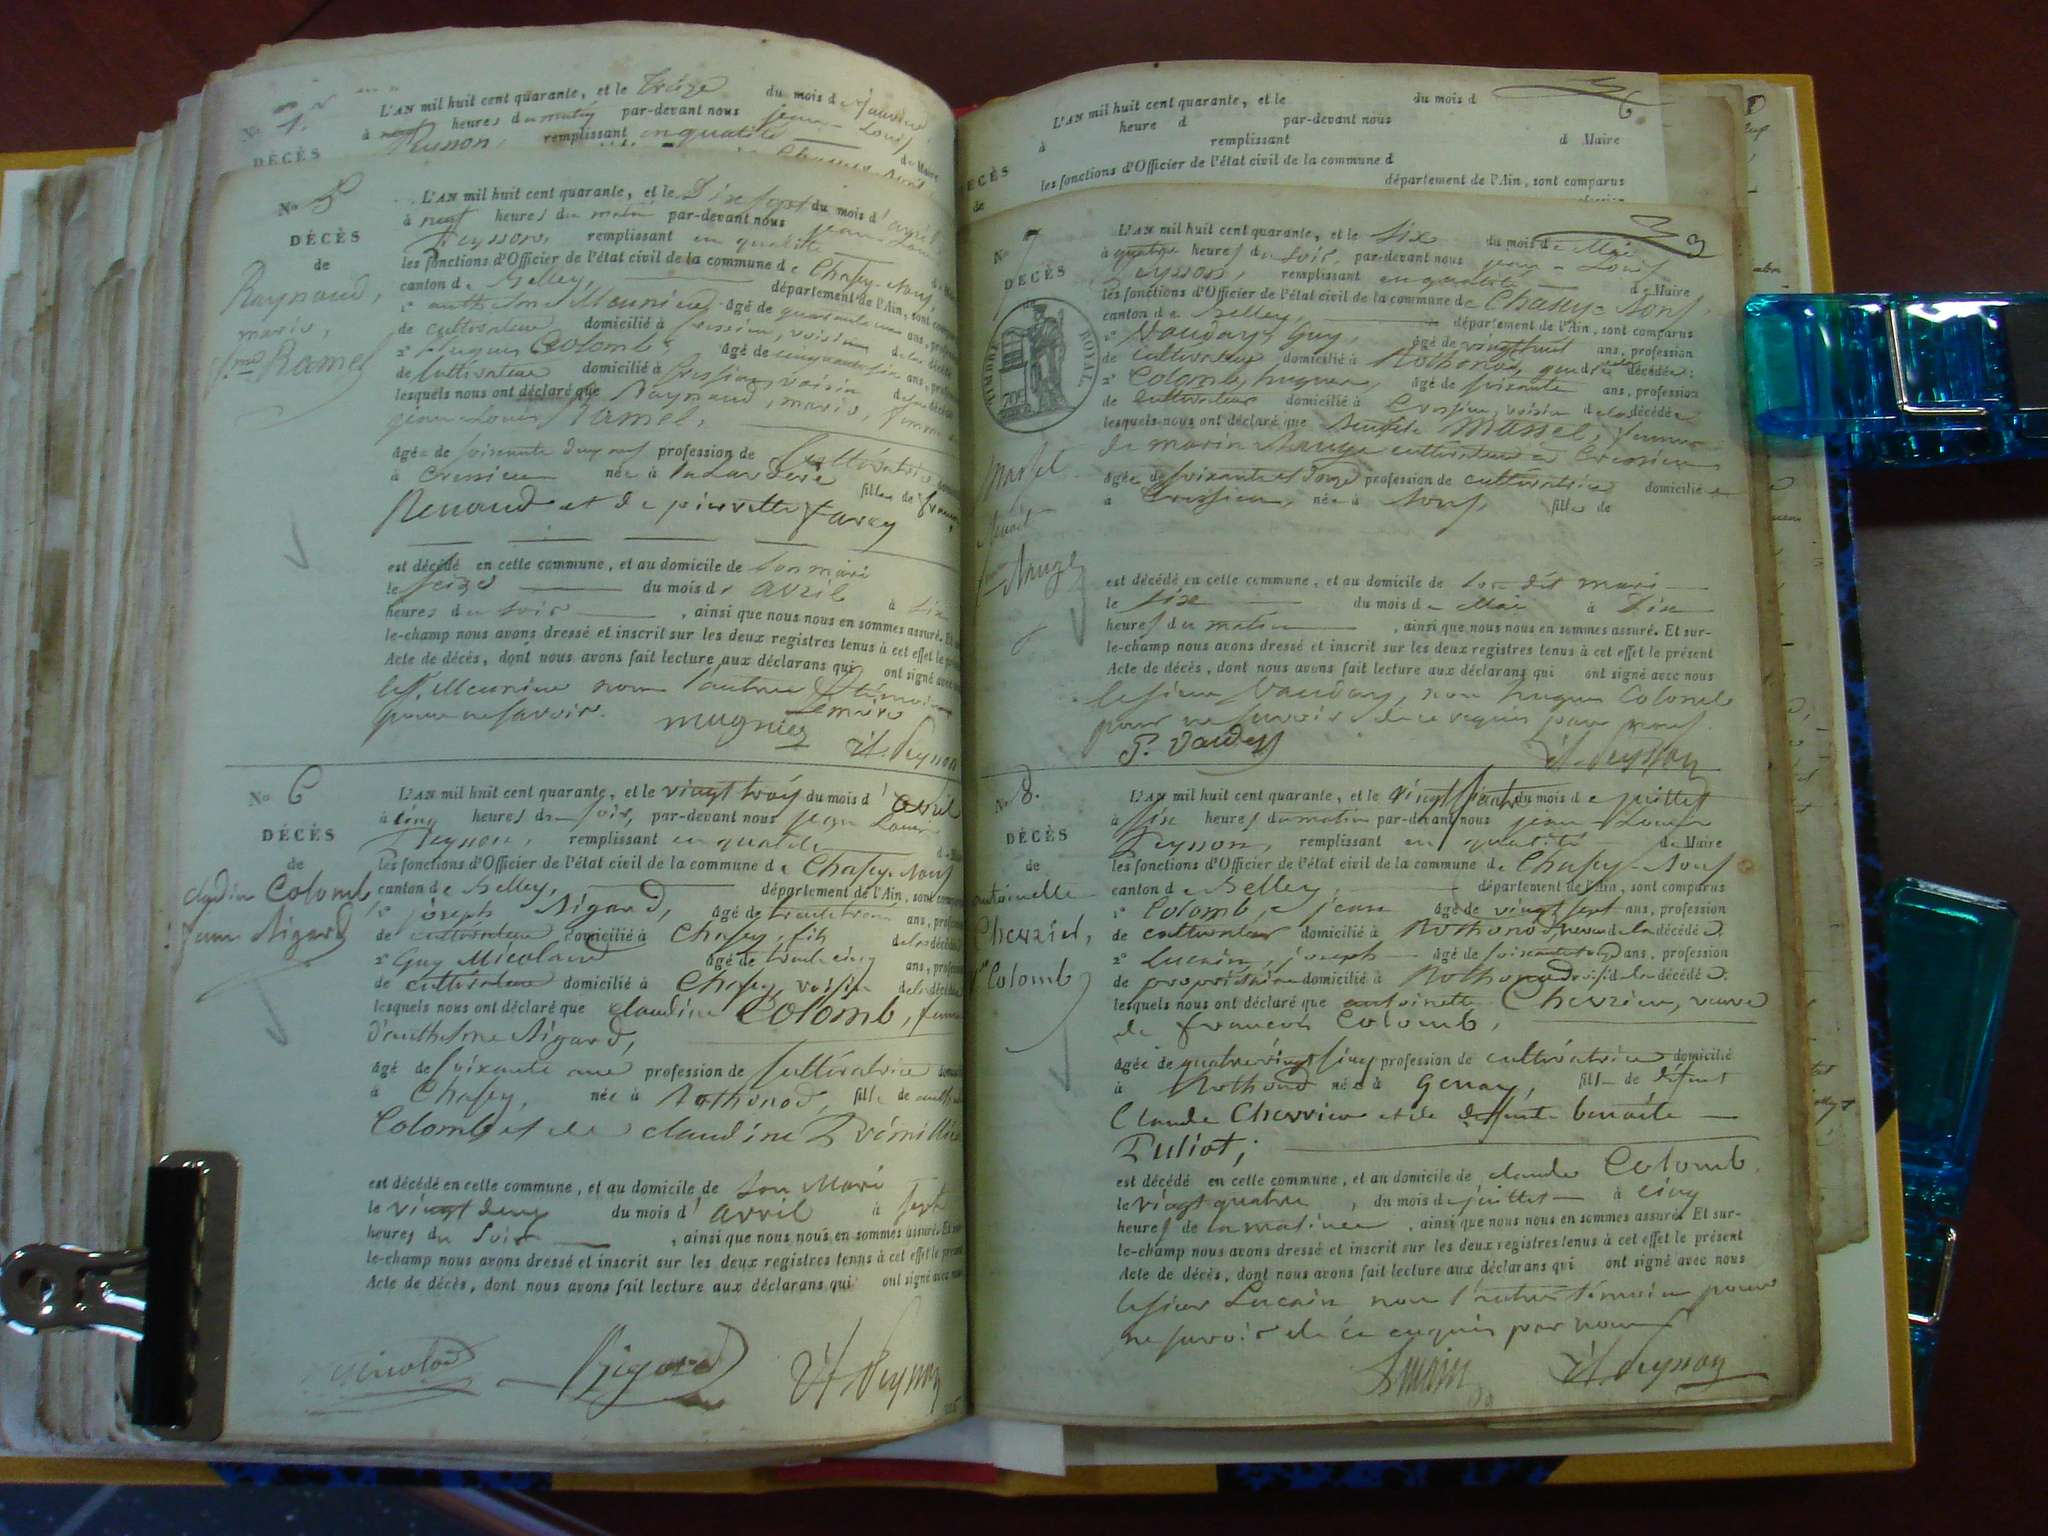 No 1.
DÉCÈS
L'AN mil huit cent quarante, et le treize du mois d
à heures du matin par-devant nous jean-Louis
Peysson, remplissant en qualité d Maire
No 5
DÉCÈS
de
Raynaud,
marie,
fme Ramel
L'AN mil huit cent quarante, et le Dix sept du mois d'avril
à neuf heures du matin par-devant nous jean-Louis
Peysson, remplissant en qualité
les fonctions d'Officier de l'état civil de la commune de Chazey-Bons
canton de Belley, département de l'Ain, sont
1° anthelme Meunier âgé de quarante ans, prof
de cultivateur domicilié à Cressieu, voisin de la décédée
2° hugues Colomb, âgé de cinquante six ans, prof
de Cultivateur domicilié à Cressieu, voisin de la décédée
lesquels nous ont déclaré que Raynaud, marie, femme
jean Louis Ramel,
agée de soixante profession de Cultivatrice
à Cressieu née à fille de
Renaud et de pierrette favey
est décédé en cette commune, et au domicile de son mari
le seize du mois d' avril à six
heures du soir , ainsi que nous nous en sommes assuré. Et
le-champ nous avons dressé et inscrit sur les deux registres tenus à cet effet le
Acte de décès, dont nous avons fait lecture aux déclarans qui ont signé avec
le sr. Meunier non l'autre témoin
pour ne savoir.
J L. Peysson
No 6
DÉCÈS
de
claudine Colomb,
femme Rigard
L'AN mil huit cent quarante, et le vingt trois du mois d' avril
à cinq heures du soir, par-devant nous jean Louis
Peysson, remplissant en qualité
les fonctions d'Officier de l'état civil de la commune de Chazey-Bons
canton de Belley, département de l'Ain, sont
1° joseph Rigard, âgé de trente ans, prof
de cultivateur domicilié à Chazey, fils de la décédée
2° Guy Micoland âgé de trente cinq ans, prof
de cultivateur domicilié à Chazey, voisin de la décédée
lesquels nous ont déclaré que claudine Colomb, femme
d'anthelme Rigard,
agé de soixante une profession de Cultivatrice
à Chazey, née à Rothonod, fille de
Colomb et de claudine
est décédé en cette commune, et au domicile de son Mari
le vingt deux du mois d' avril à sept
heures du soir , ainsi que nous nous en sommes assuré. Et
le-champ nous avons dressé et inscrit sur les deux registres tenus à cet effet le présent
Acte de décès, dont nous avons fait lecture aux déclarans qui ont signé avec nous
Micoland Rigard J L. Peysson
6
DÉCÈS
de
L'AN mil huit cent quarante, et le du mois d
à heure d par-devant nous
remplissant d Maire
les fonctions d'Officier de l'état civil de la commune d
département de l'Ain, sont comparus
3
No 7
DÉCÈS
TIMBRE ROYAL
Massel
Benoite
femme
Mauge
L'AN mil huit cent quarante, et le six du mois de Mai
à quatre heures du soir, par-devant nous jean-Louis
Peysson, remplissant en qualité de Maire
les fonctions d'Officier de l'état civil de la commune de Chazey-Bons,
canton de Belley, département de l'Ain, sont comparus
1° Vauday, Guy, âgé de vingt huit ans, profession
de Cultivateur domicilié à Rothonod, gendre de la décédée:
2° Colomb, hugues, âgé de soixante ans, profession
de Cultivateur domicilié à Cressieu, voisin de la décédée
lesquels nous ont déclaré que Benoite Massel, femme
de marin Mauge cultivateur à Cressieu
agée de soixante et profession de cultivatrice domiciliée
à Cressieu, née à Bons, fille de
est décédé en cette commune, et au domicile de son dit mari
le six du mois de Mai à Dix
heures du matin , ainsi que nous nous en sommes assuré. Et sur-
le-champ nous avons dressé et inscrit sur les deux registres tenus à cet effet le présent
Acte de décès, dont nous avons fait lecture aux déclarans qui ont signé avec nous
le sieur Vauday, non hugues Colomb
pour ne savoir de ce requis par nous.
J L. Peysson
No 8.
DÉCÈS
de
antoinette
Chevrier,
Ve Colomb
L'AN mil huit cent quarante, et le vingt quatre du mois de juillet
à six heures du matin par-devant nous jean-Louis
Peysson, remplissant en qualité de Maire
les fonctions d'Officier de l'état civil de la commune de Chazey-Bons
canton de Belley, département de l'Ain, sont comparus
1° Colomb, jean âgé de vingt sept ans, profession
de cultivateur domicilié à Rothonod, neveu de la décédée.
2° Lucain, joseph âgé de soixante ans, profession
de propriétaire domicilié à Rothonod voisin de la décédée.
lesquels nous ont déclaré que antoinette Chevrier, veuve
de francois Colomb,
agée de quatre vingt cinq profession de cultivatrice domicilié
à Rothonod née à fille de défunt
Claude Chevrier et de défunte benoite
Tuliot;
est décédé en cette commune, et au domicile de claude Colomb.
le vingt quatre, du mois de juillet à cinq
heures de la matinée , ainsi que nous nous en sommes assuré. Et sur-
le-champ nous avons dressé et inscrit sur les deux registres tenus à cet effet le présent
Acte de décès, dont nous avons fait lecture aux déclarans qui ont signé avec nous
le sieur Lucain non l'autre témoin pour
ne savoir de ce enquis par nous
J L. Peysson